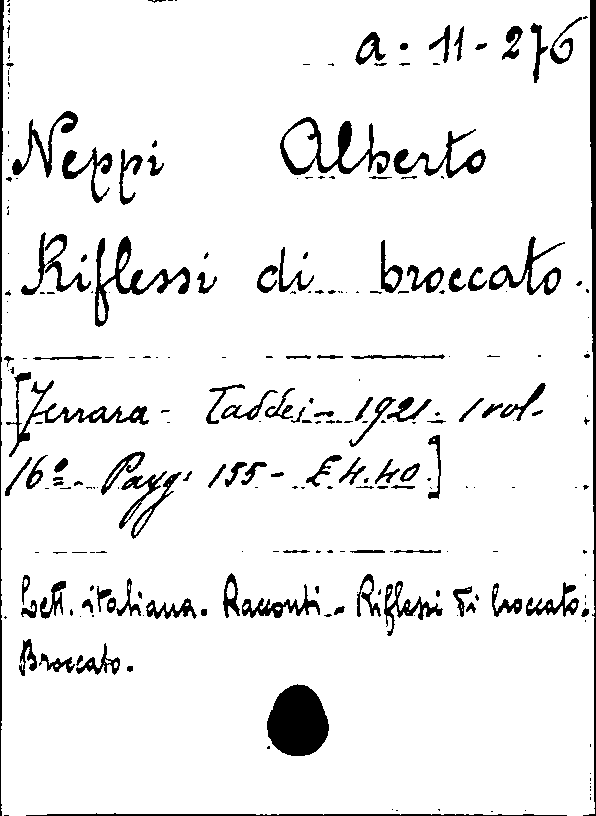 a. 11-276
Neppi Alberto
Riflessi di broccato.
[Ferrara - Taddei - 1921. 1 vol.
16º - Pagg: 155 - £ 4.40]
Lett. italiana. Racconti - Riflessi di broccato.
Broccato.